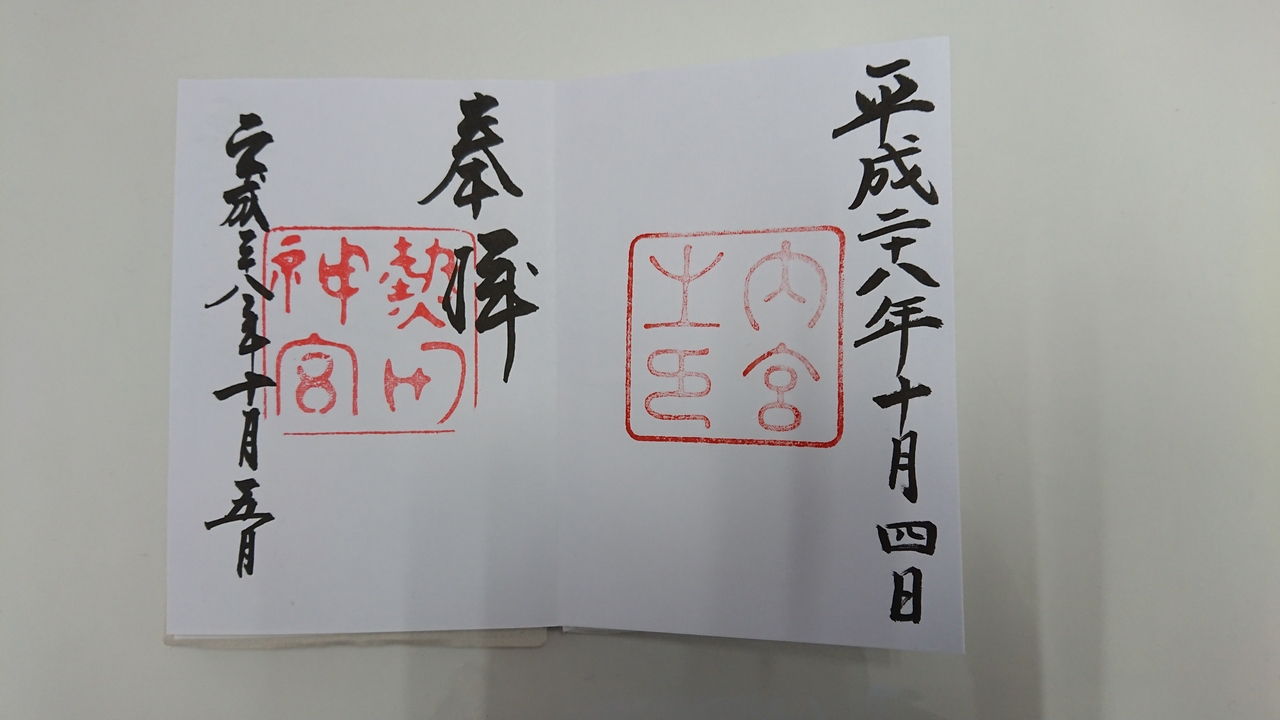 平成二十八年十月四日
内宮之印
奉拝
熱田神宮
平成二十八年十月五日